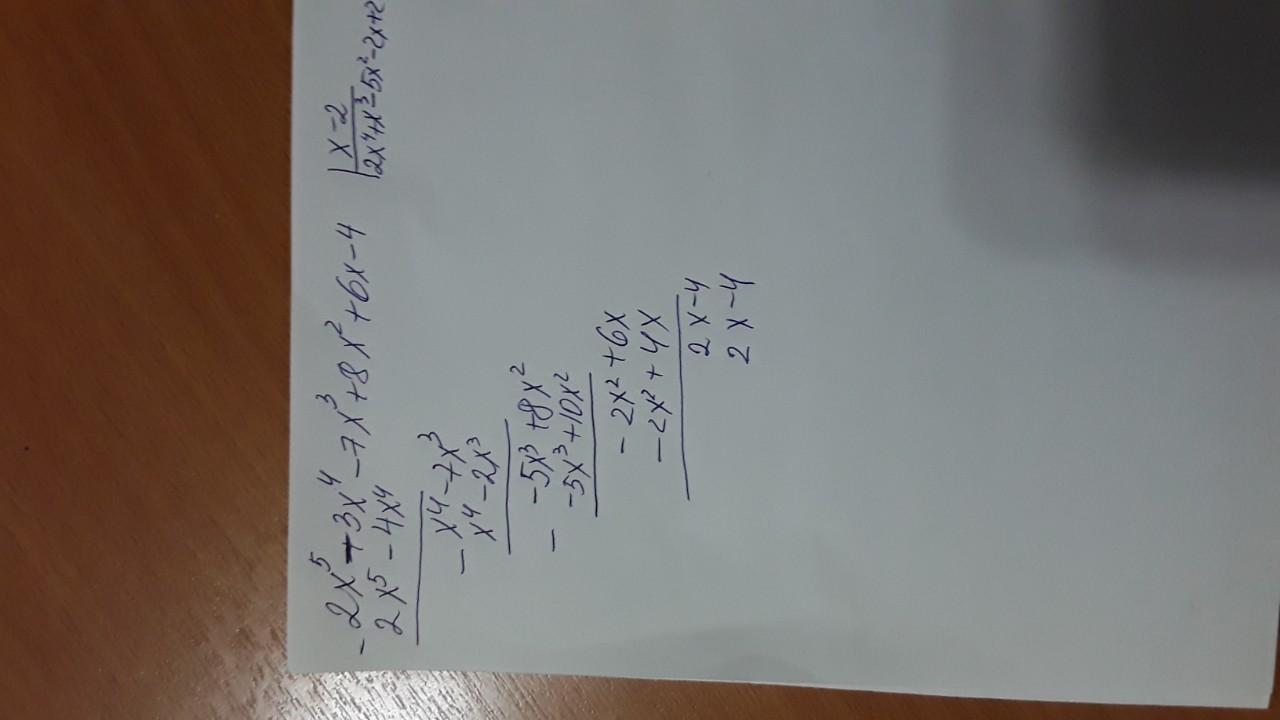 - 2x⁵ - 3x⁴ - 7x³ + 8x² + 6x - 4 | x - 2
2x⁵ - 4x⁴ 2x⁴ + x³ - 5x² - 2x + 2
- x⁴ - 7x³
x⁴ - 2x³
- -5x³ + 8x²
-5x³ + 10x²
- 2x² + 6x
- 2x² + 4x
2x - 4
2x - 4